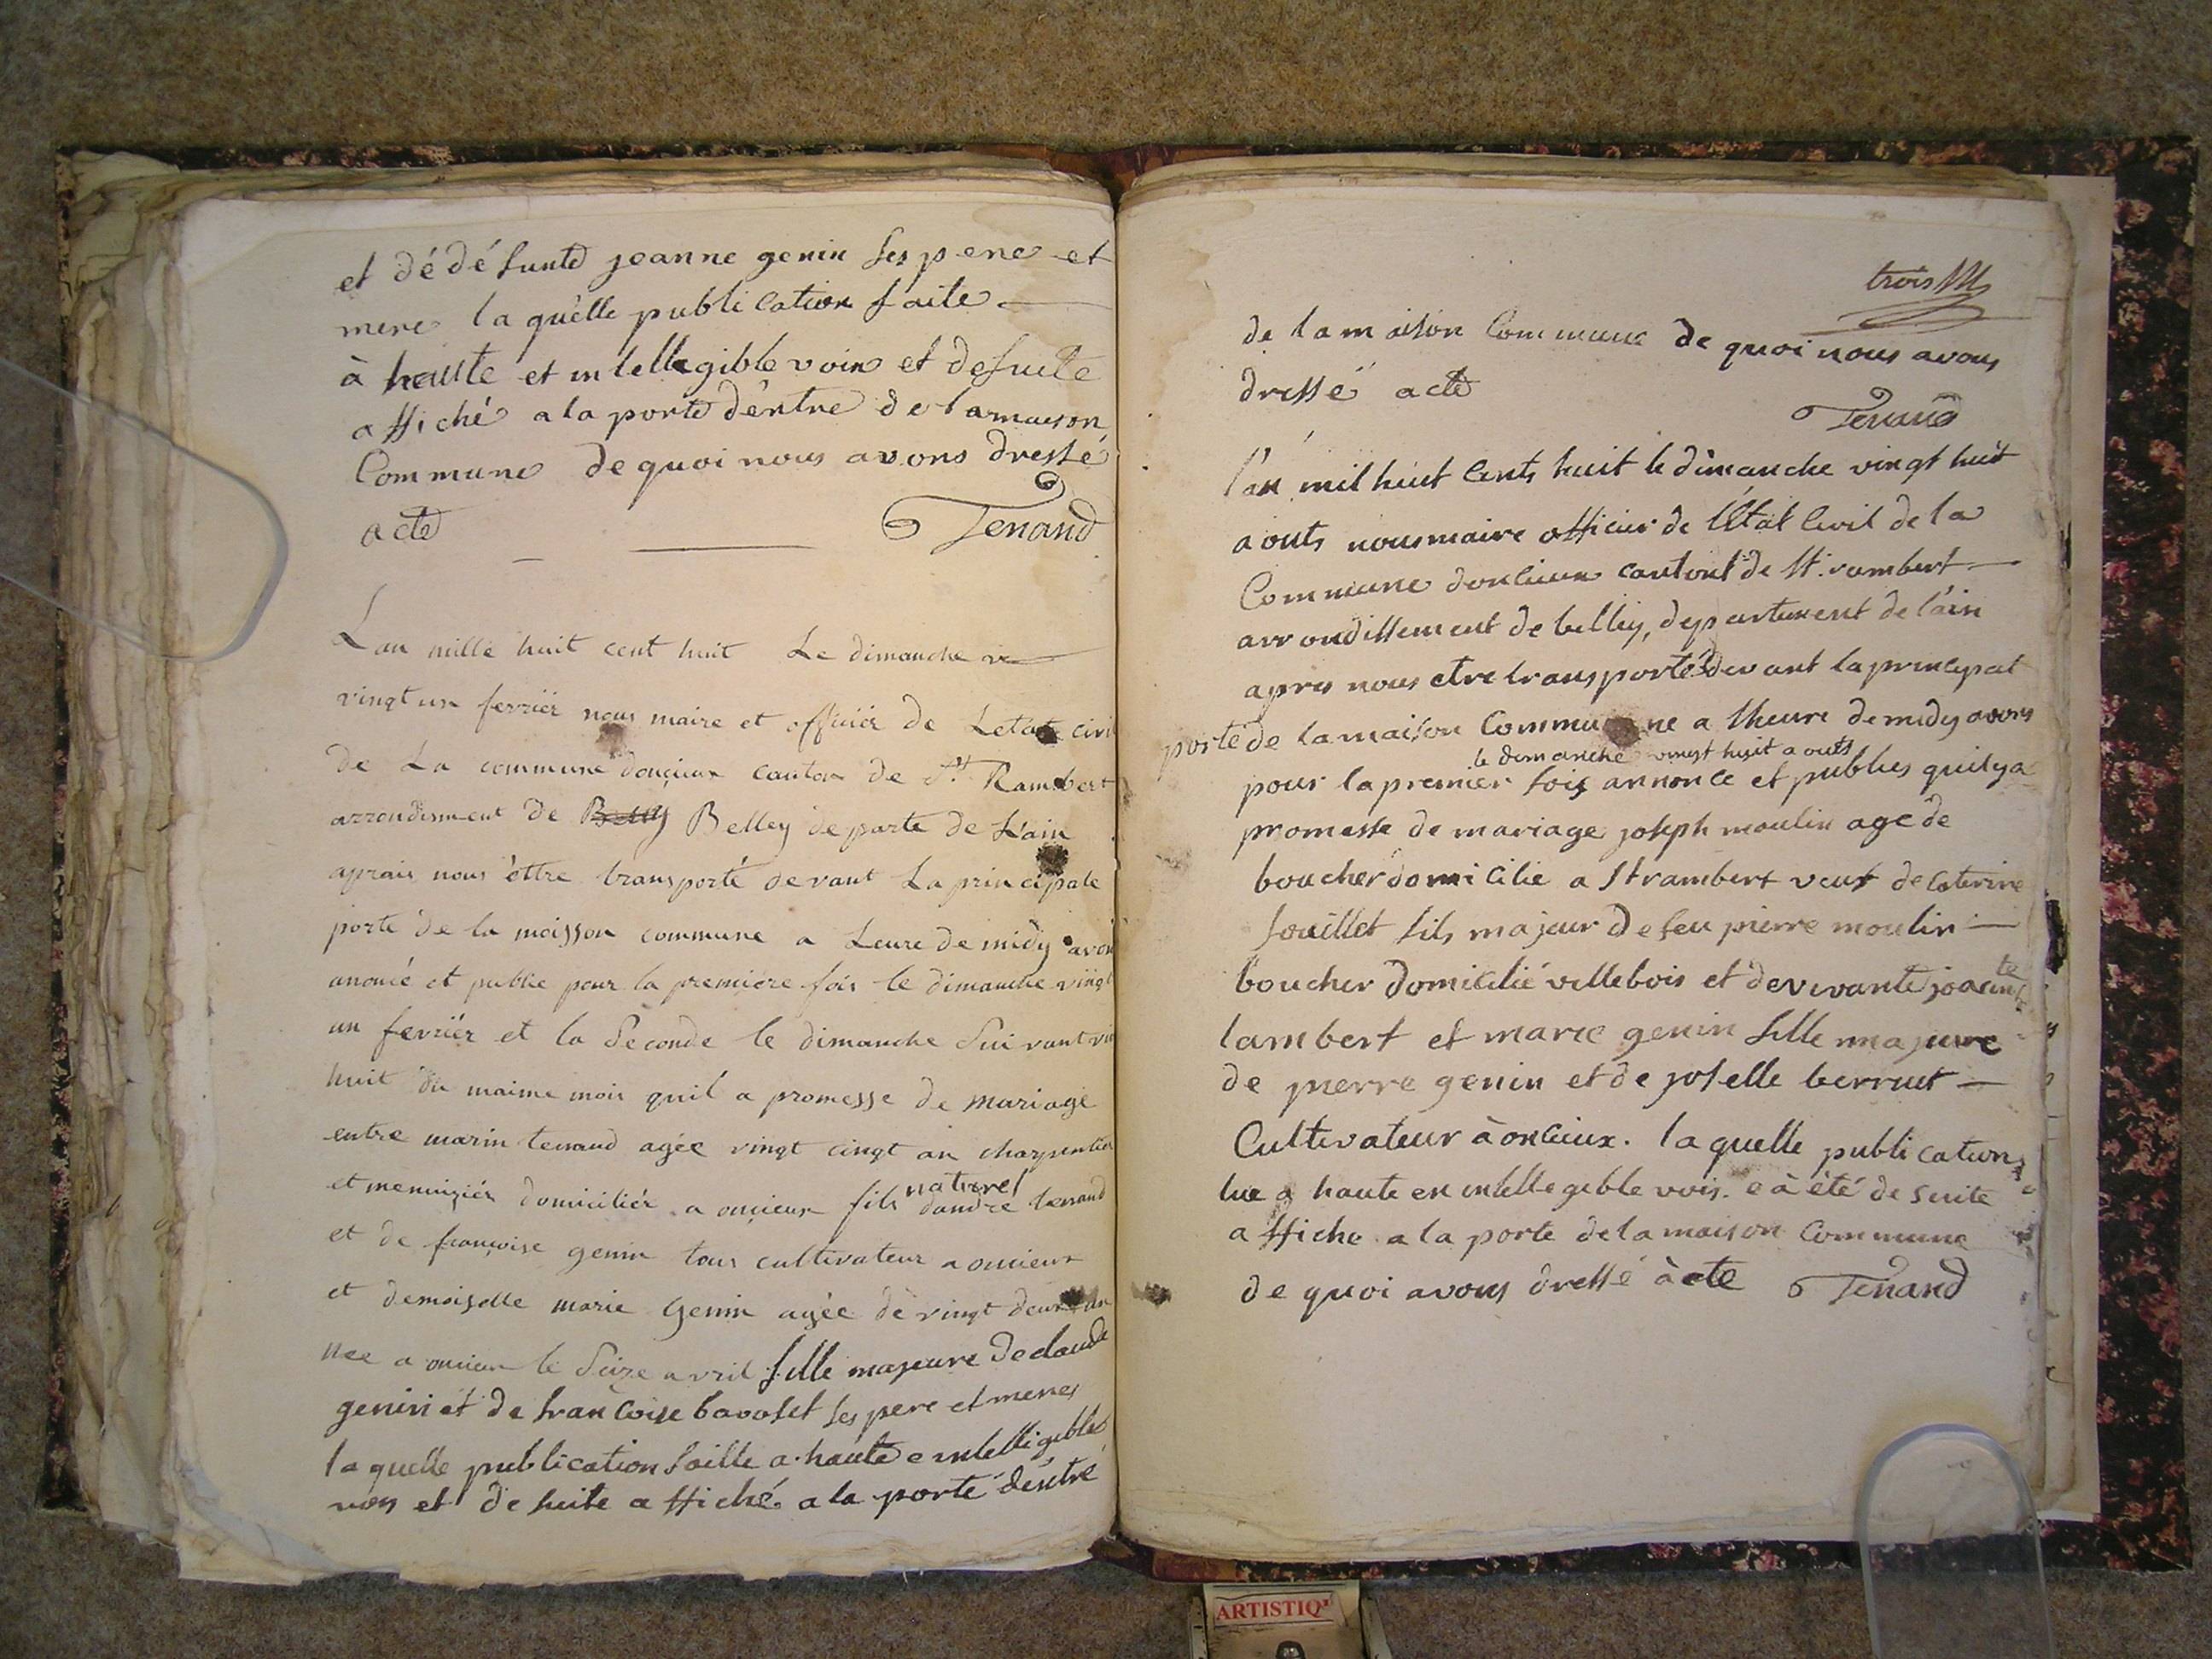 et dé défunte jeanne genin ses pere et
mere la quelle publication faite
à haute et intellegible voix et desuite
affiché a la porte d'entre de la maison
Commune de quoi nous avons dressé
acte
Tenand
Lan mille huit cent huit Le dimanche
vingt un fevriér nous maire et officiér de Letat civi
de La commune donçieux canton de St Rambert
arrondisment de Belley departe de L'ain
aprais nous éttre transporté devant La principale
porte de la moisson commune a Leure de midy avon
anoncé et publie pour la premiére fois le dimanche vingt
un fevriér et la Seconde le dimanche Suivant vin
huit du maime mois quil a promesse de mariage
entre marin tenand agée vingt cingt an charpentier
et menuiziér domiciliér a oncieux fils naturel dandre tenand
et de françoise genin tous cultivateur a oncieux
et demoiselle marie Genin agée de vingt deux an
nee a oncieux le Seize avril fille majeure de claude
genin et de francoise bavoset ses pere et meres
la quelle publication faitte a haute e intelligible
voix et de suite affiché a la porte déntré
trois
de la maison Commune de quoi nous avons
dressé acte
Tenand
l'an mil huit cents huit le dimanche vingt huit
aouts nous maire officier de l'Etat Civil de la
Commune doncieux cantont de St. rambert
arrondissement de belley, departement de l'ain
apres nous etre transporté devant la principal
porte de la maison Commune a lheure de midy avons
le dimanche vingt huit aouts
pour la premier fois annonce et publies quil y a
promesse de mariage joseph moulin age de
boucher domicilie a St rambert veuf de caterine
fouillet fils majeur de feu pierre moulin
boucher domicilié villebois et de vivante joacinte
lambert et marie genin fille majeure
de pierre genin et de joselle berrut
Cultivateur à oncieux. la quelle publication
lue a haute en intellegeble vois. e à été de suite
affiche a la porte de la maison Commune
de quoi avons dressé àcte Tenand
ARTISTIQ